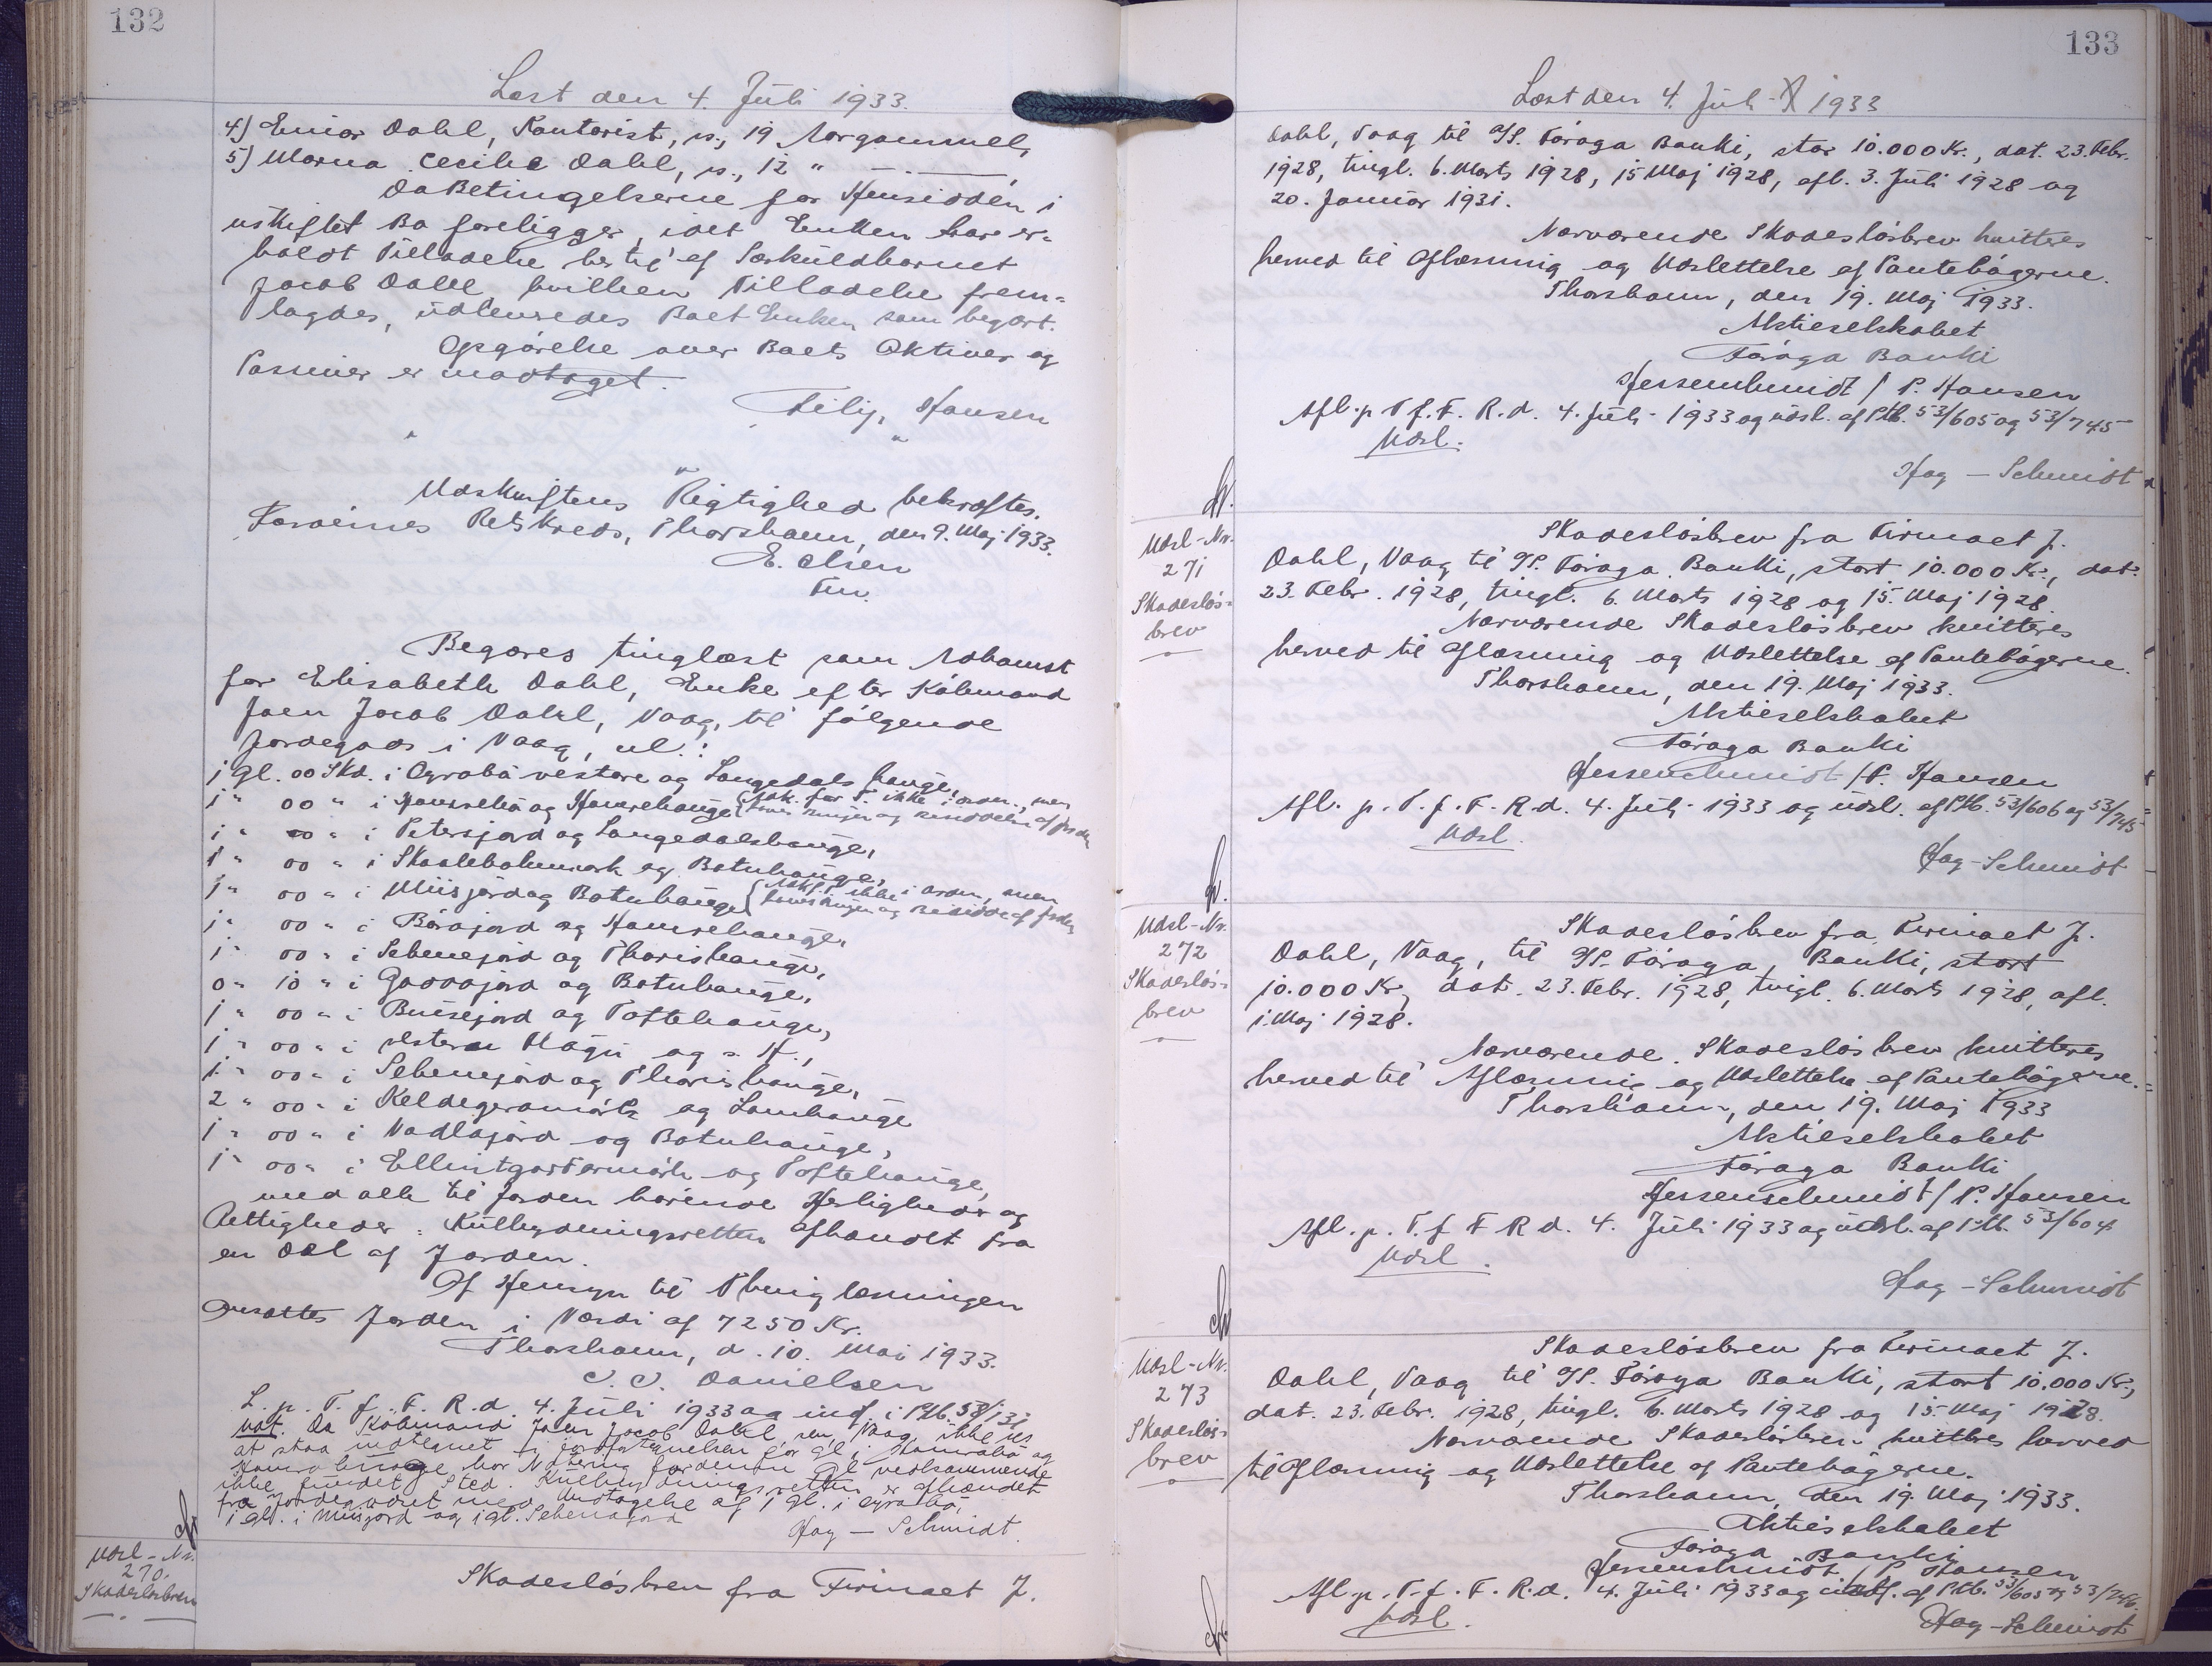 132
Læst den 4. Juli 1933.
4) Einar Dahl, Kontorist, s., 19 Aar gammel,
5) Marna Cecilie Dahl, s., 12 " —.—,
Da Betingelserne for Hensidden i
uskiftet Bo foreligger, idet Enken har er-
holdt Tilladelse hertil af Særkuldbarnet
Jacob Dahl hvilken Tilladelse frem-
lagdes, udleveredes Boet Enken som begært.
Opgørelse over Boets Aktiver og
Passiver er modtaget.
Hansen
Udskriftens Rigtighed bekræftes.
Færøernes Retskreds, Thorshavn, den 9. Maj 1933.
E. Olsen
Fm.
Begæres tinglæst som Adkomst
for Elisabeth Dahl, Enke efter Købmand
Joen Jacob Dahl, Vaag, til følgende
Jordegods i Vaag, nl.:
1 gl. 00 Skd. i Øyrabø vestare og Langedals hauge,
1 " 00 " i Hamrebø og Hamrehauge (Adk. for T. ikke i orden, men
1 " 00 " i Petersjord og Langedalshauge,
1 " 00 " i Skaalebølsmørk og Botnhauge,
1 " 00 " i Miisjord og Botnhauge (Adk. f. T. ikke i orden, men
1 " 00 " i Bárajord og Hamrehauge,
1 " 00 " i Sebenejord og Thorishauge,
0 " 10 " i Gaddajord og Botnhauge,
1 " 00 " i Buisejord og Toftehauge,
1 " 00 " i Hagu og s. H.,
1 " 00 " i Sebenejord og Thorishauge,
2 " 00 " i Keldegeramørk og Lamhauge
1 " 00 " i Vadlajord og Botnhauge,
1 " 00 " i Ellintgardsmørk og Toftehauge,
med alle til Jorden hørende Herligheder og
Rettigheder. Kulbrydningsretten afhændet fra
en Del af Jorden.
Af Hensyn til Thinglæsningen
ansættes Jorden i Værdi af 7250 Kr.
Thorshavn, d. 10. Maj 1933.
J. J. Danielsen
L. p. T. f. F. R. d. 4. Juli 1933 og indf. i Ptb. 58/131
Not. Da Købmand Joen Jacob Dahl sen. Vaag ikke ses
at staa indtegnet i Jordfortegnelsen for 1 gl. i Hamrabø og
Hamrahauge har Notering forsaavidt vedkommende
ikke fundet Sted. Kulbrydningsretten er afhændet
fra Jordegodset med Undtagelse af 1 gl. i Øyrabø,
1 gl. i Miisjord og 1 gl. Sebenajord
Hag — Schmidt.
Udsl-Nr.
270.
Skadesløsbrev
Skadesløsbrev fra Firmaet J.
133
Læst den 4. Juli 1933
Dahl, Vaag til A/S. Føroya Banki, stor 10.000 Kr., dat. 23. Febr.
1928, tingl. 6. Marts 1928, 15 Maj 1928, afl. 3. Juli 1928 og
20. Januar 1931.
Nærværende Skadesløsbrev kvitteres
herved til Aflæsning og Udslettelse af Pantebøgerne.
Thorshavn, den 19. Maj 1933.
Aktieselskabet
Føroya Banki
Hessenschmidt / P. Hansen
Afl. p. T. f. F. R. d. 4. Juli 1933 og udsl. af Ptb. 53/605 og 53/745
Udsl.
Hag — Schmidt
Udsl-Nr.
271
Skadesløs-
brev
Skadesløsbrev fra Firmaet J.
Dahl, Vaag til A/S. Føroya Banki, stort 10.000 Kr., dat.
23. Febr. 1928, tingl. 6. Marts 1928 og 15. Maj 1928.
Nærværende Skadesløsbrev kvitteres
herved til Aflæsning og Udslettelse af Pantebøgerne.
Thorshavn, den 19. Maj 1933.
Aktieselskabet
Føroya Banki
Hessenschmidt / P. Hansen
Afl. p. T. f. F. R. d. 4. Juli 1933 og udsl. af Ptb. 53/606 og 53/745
Udsl.
Hag — Schmidt
Udsl-Nr.
272
Skadesløs-
brev
Skadesløsbrev fra Firmaet J.
Dahl, Vaag, til A/S. Føroya Banki, stort
10.000 Kr., dat. 23. Febr. 1928, tingl. 6. Marts 1928, afl.
1. Maj 1928.
Nærværende Skadesløsbrev kvitteres
herved til Aflæsning og Udslettelse af Pantebøgerne.
Thorshavn, den 19. Maj 1933
Aktieselskabet
Føroya Banki
Hessenschmidt / P. Hansen
Afl. p. T. f. F. R. d. 4. Juli 1933 og udsl. af Ptb. 53/604
Udsl.
Hag — Schmidt
Udsl-Nr.
273
Skadesløs-
brev
Skadesløsbrev fra Firmaet J.
Dahl, Vaag til A/S. Føroya Banki, stort 10.000 Kr.,
dat. 23. Febr. 1928, tingl. 6. Marts 1928 og 15. Maj 1928.
Nærværende Skadesløsbrev kvitteres herved
til Aflæsning og Udslettelse af Pantebøgerne.
Thorshavn, den 19. Maj 1933.
Aktieselskabet
Føroya Banki
Hessenschmidt / P. Hansen
Afl. p. T. f. F. R. d. 4. Juli 1933 og udsl. af Ptb. 53/603 og 53/746.
Udsl.
Hag — Schmidt